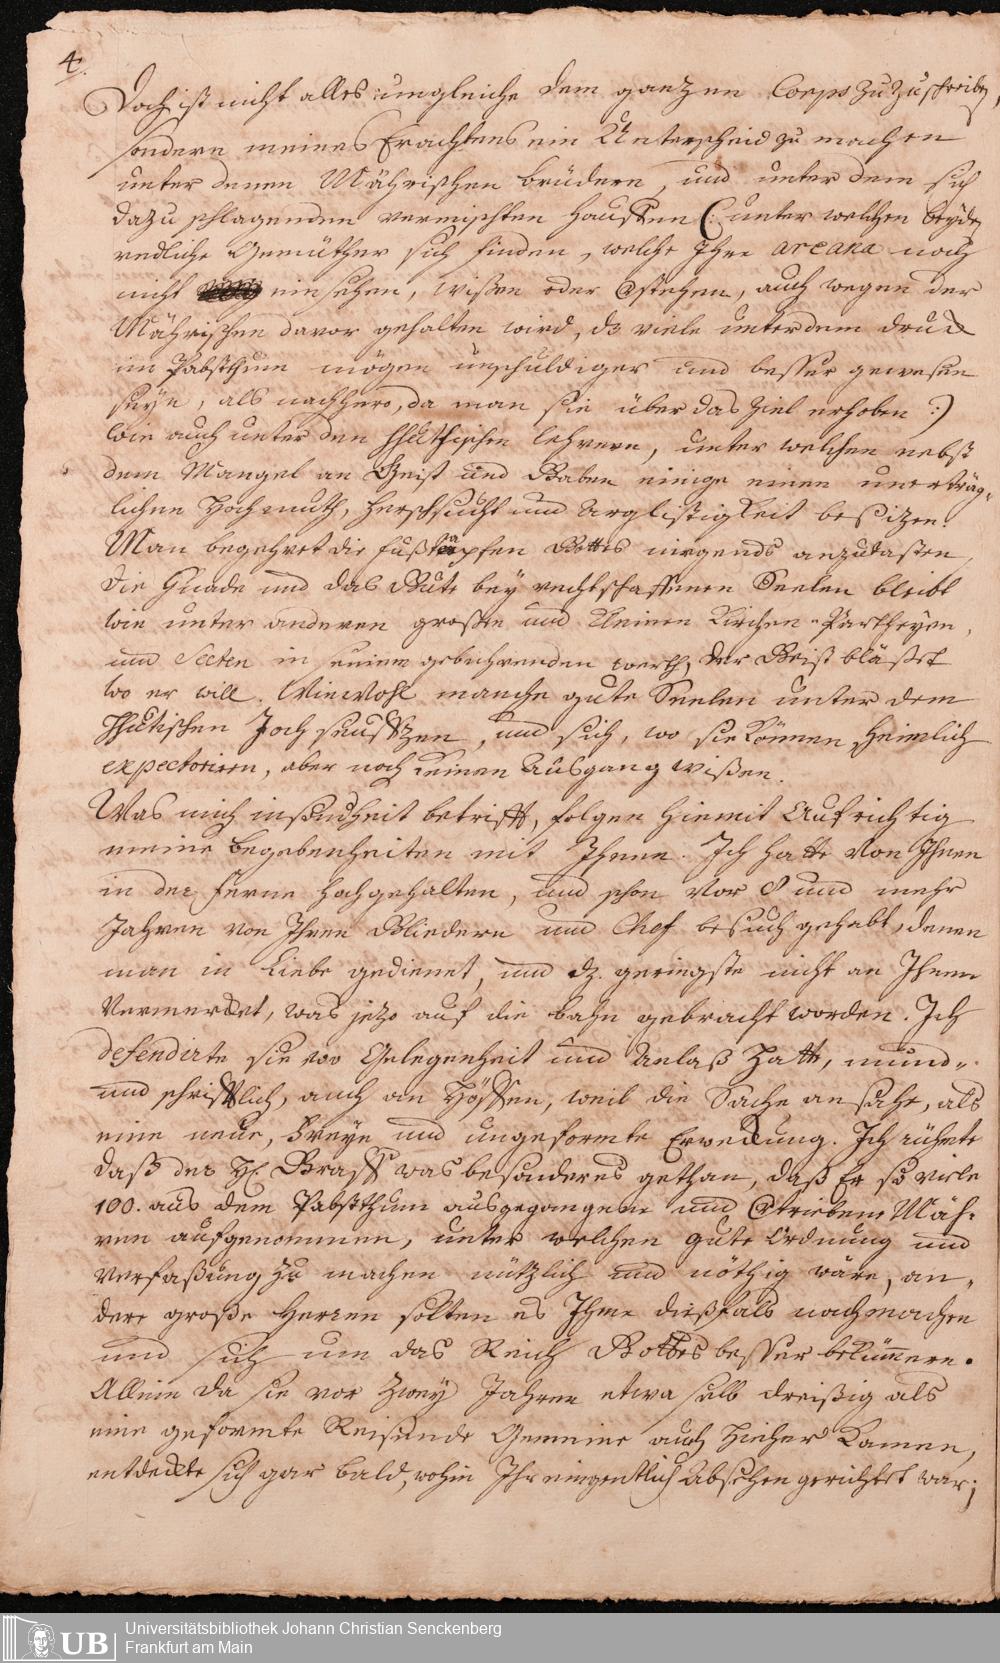 4.
Doch ist nicht alles ungleiche dem gantzen Corps zuzuschreiben,
sondern meines Erachtens ein Unterscheid zu machen
unter denen Mährischen brüdern, und unter dem sich
dazu schlagenden vermischten hauffen (: unter welchen beyden
redliche Gemüther sich finden, welche Ihre arcana noch
nicht einsehen, wißen oder verstehen, auch wegen der
Mährischen davor gehalten wird, daß viele unter dem druck
im Pabstthum mögen unschuldiger und besser gewesen
seyn, als nachhero, da man sie über das Ziel erhoben :)
wie auch unter den Hhuthischen lehrern, unter welchen nebst
dem Mangel an Geist und Gaben einige einen unerträg-
lichen Hochmuth, herschsucht und Arglistigkeit besitzen.
Man begehret die fußtapfen Gottes nirgends anzutasten,
die Gnade und das Gute bey rechtschaffenen Seelen bleibt
wie unter anderen großen und kleinen Kirchen-Partheyen,
und Secten in seinem gebuhrenden werth, der Geist bläset
wo er will. Wiewohl manche gute Seelen unter dem
Hhutischen Joch seuffzen, und sich, wo sie können, heimlich
expectoriren, aber noch keinen Ausgang wißen.
Was mich insonderheit betrifft, folgen hiemit Aufrichtig
meine begebenheiten mit Ihnen. Ich hatte Von Ihnen
in der ferne hochgehalten, und schon Vor 8 und mehr
Jahren von Ihren Gliedern und Chef besuch gehabt, denen
man in Liebe gedienet, und dz. geringste nicht an Ihnen
Vermercket, was jezo auf die bahn gebracht worden. Ich
defendirte sie wo Gelegenheit und Anlaß hatte, mund-
und schrifftlich, auch an Höffen, weil die Sache ansahe, als
eine neue, freye und ungeformte Erweckung. Ich rühmte
daß der H. Graff was besonderes gethan, daß Er so viele
100. aus dem Pabstthum ausgegangene und vertriebene Mäh-
ren aufgenommen, unter welchen gute Ordnung und
Verfaßung zu machen nützlich und nöthig wäre, an-
dere große Herren solten es Ihme dießfals nachmachen
und sich um das Reich Gottes besser bekümmern.
Allein da sie vor zwey Jahren etwa selb dreißig als
eine geformte Reisende Gemeine auch hieher kamen,
entdeckte sich gar bald, wohin Ihr eingentlich Absehen gerichtet war;
Universitätsbibliothek Johann Christian Senckenberg
Frankfurt am Main
UB